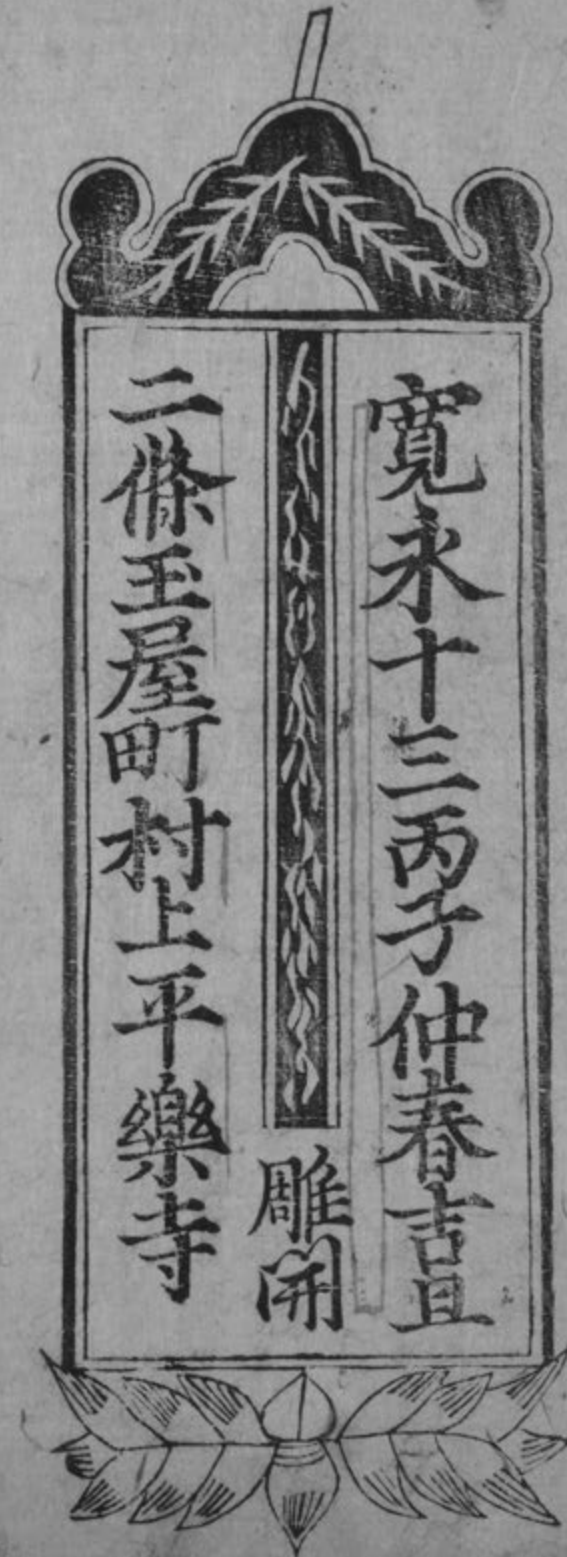 寛永十三丙子仲春吉旦
二條玉屋町村上平樂寺
雕開